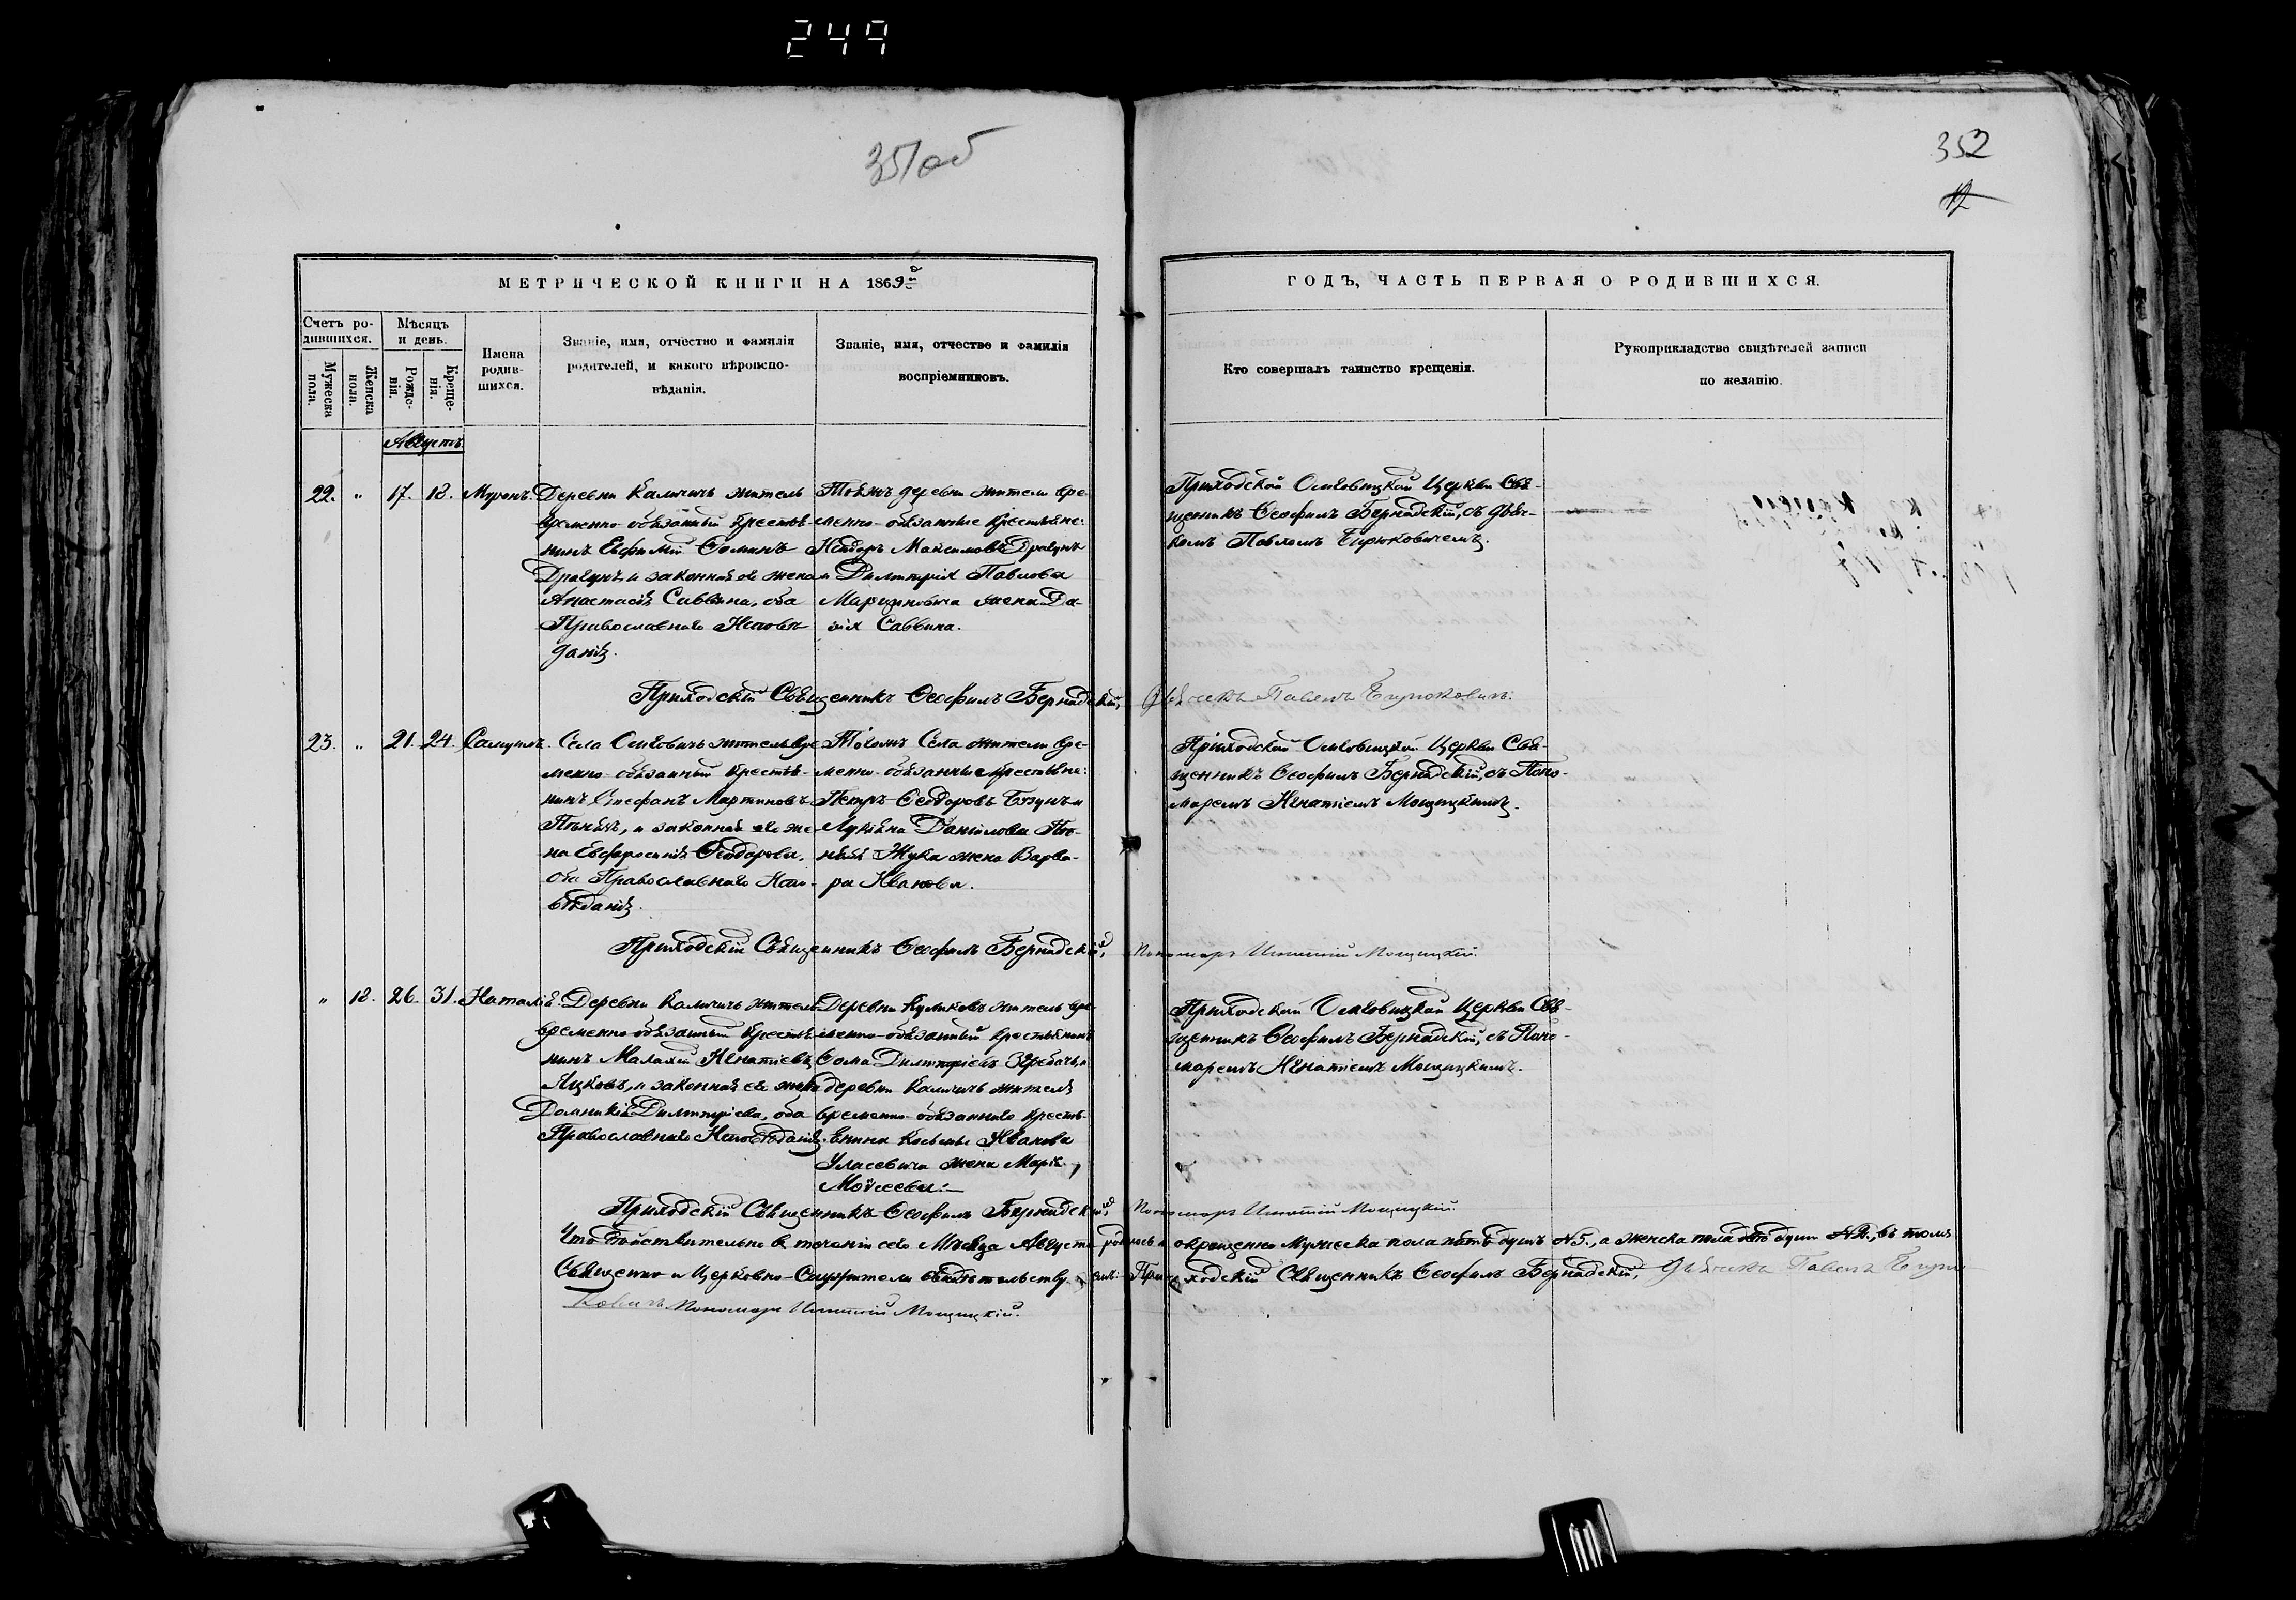 249
351об
352
12
МЕТРИЧЕСКОЙ КНИГИ НА 1869й
ГОДЪ, ЧАСТЬ ПЕРВАЯ О РОДИВШИХСЯ.
Счетъ ро-
дившихся.
Мужеска
пола.
Женска
пола.
Мѣсяцъ
и день.
Рожде-
нія.
Креще-
нія.
Имена
родив-
шихся.
Званіе, имя, отчество и фамилія
родителей, и какого вѣроиспо-
вѣданія.
Званіе, имя, отчество и фамилія
воспріемниковъ.
Кто совершалъ таинство крещенія.
Рукоприкладство свидѣтелей записи
по желанію.
Августъ.
22. " 17. 18. Миронъ.
Деревни Каличичь житель
временно-обязанный крестья-
нинъ Евфимій Ѳоминъ
Драгунъ, и законная его жена
Анастасія Саввина, оба
Православнаго Исповѣ-
данія.
Тойжъ деревни жители вре-
менно-обязанные крестьяне:
Исидоръ Максимовъ Драгунъ
и Димитрія Павлова
Марциновича жена Да-
рія Саввина.
Приходской Осиовицкой Церкви Свя-
щенникъ Ѳеофилъ Бернадскій, съ дьяч-
комъ Павломъ Бирюковичемъ.
Приходскій Священникъ Ѳеофилъ Бернадскій, Дьячекъ Павелъ Бирюковичъ.
23. " 21. 24. Самуилъ.
Села житель вре-
менно-обязанный крестья-
нинъ Стефанъ Мартиновъ
и законная его же-
на Евфросинія Ѳеодорова,
оба Православнаго Испо-
вѣданія.
Тогожъ Села жители вре-
менно-обязанные крестьяне:
Петръ Ѳеодоровъ и
Лукіяна Даніилова
Жука жена Варва-
ра Иванова.
Приходской Церкви Свя-
щенникъ Ѳеофилъ Бернадскій, съ Поно-
маремъ Игнатіемъ Мощицкимъ.
Приходскій Священникъ Ѳеофилъ Бернадскій, Пономарь Игнатій Мощицкій.
" 12. 26. 31. Наталія
Деревни Каличичь житель
временно-обязанный крестья-
нинъ Малахій Игнатіевъ
Яцковъ, и законная его жена
Домникія Димитріева, оба
Православнаго Исповѣданія.
Деревни Куликовъ житель вре-
менно-обязанный крестьянинъ
Ѳома Димитріевъ и
деревни Каличичь жителя
временно-обязаннаго кресть-
янина Косьмы Иванова
Уласевича жена Марія
Моѵсеева.
Приходской Церкви Свя-
щенникъ Ѳеофилъ Бернадскій, съ Поно-
маремъ Игнатіемъ Мощицкимъ.
Приходскій Священникъ Ѳеофилъ Бернадскій, Пономарь Игнатій Мощицкій.
Что дѣйствительно въ теченіи сего Мѣсяца Августа родилось и окрещено Мужеска пола пять душъ №5., а женска пола двѣ души №2., въ томъ
Священно и Церковно-Служители свидѣтельствуемъ: Приходскій Священникъ Ѳеофилъ Бернадскій, Дьячекъ Павелъ Бирю-
ковичъ Пономарь Игнатій Мощицкій.